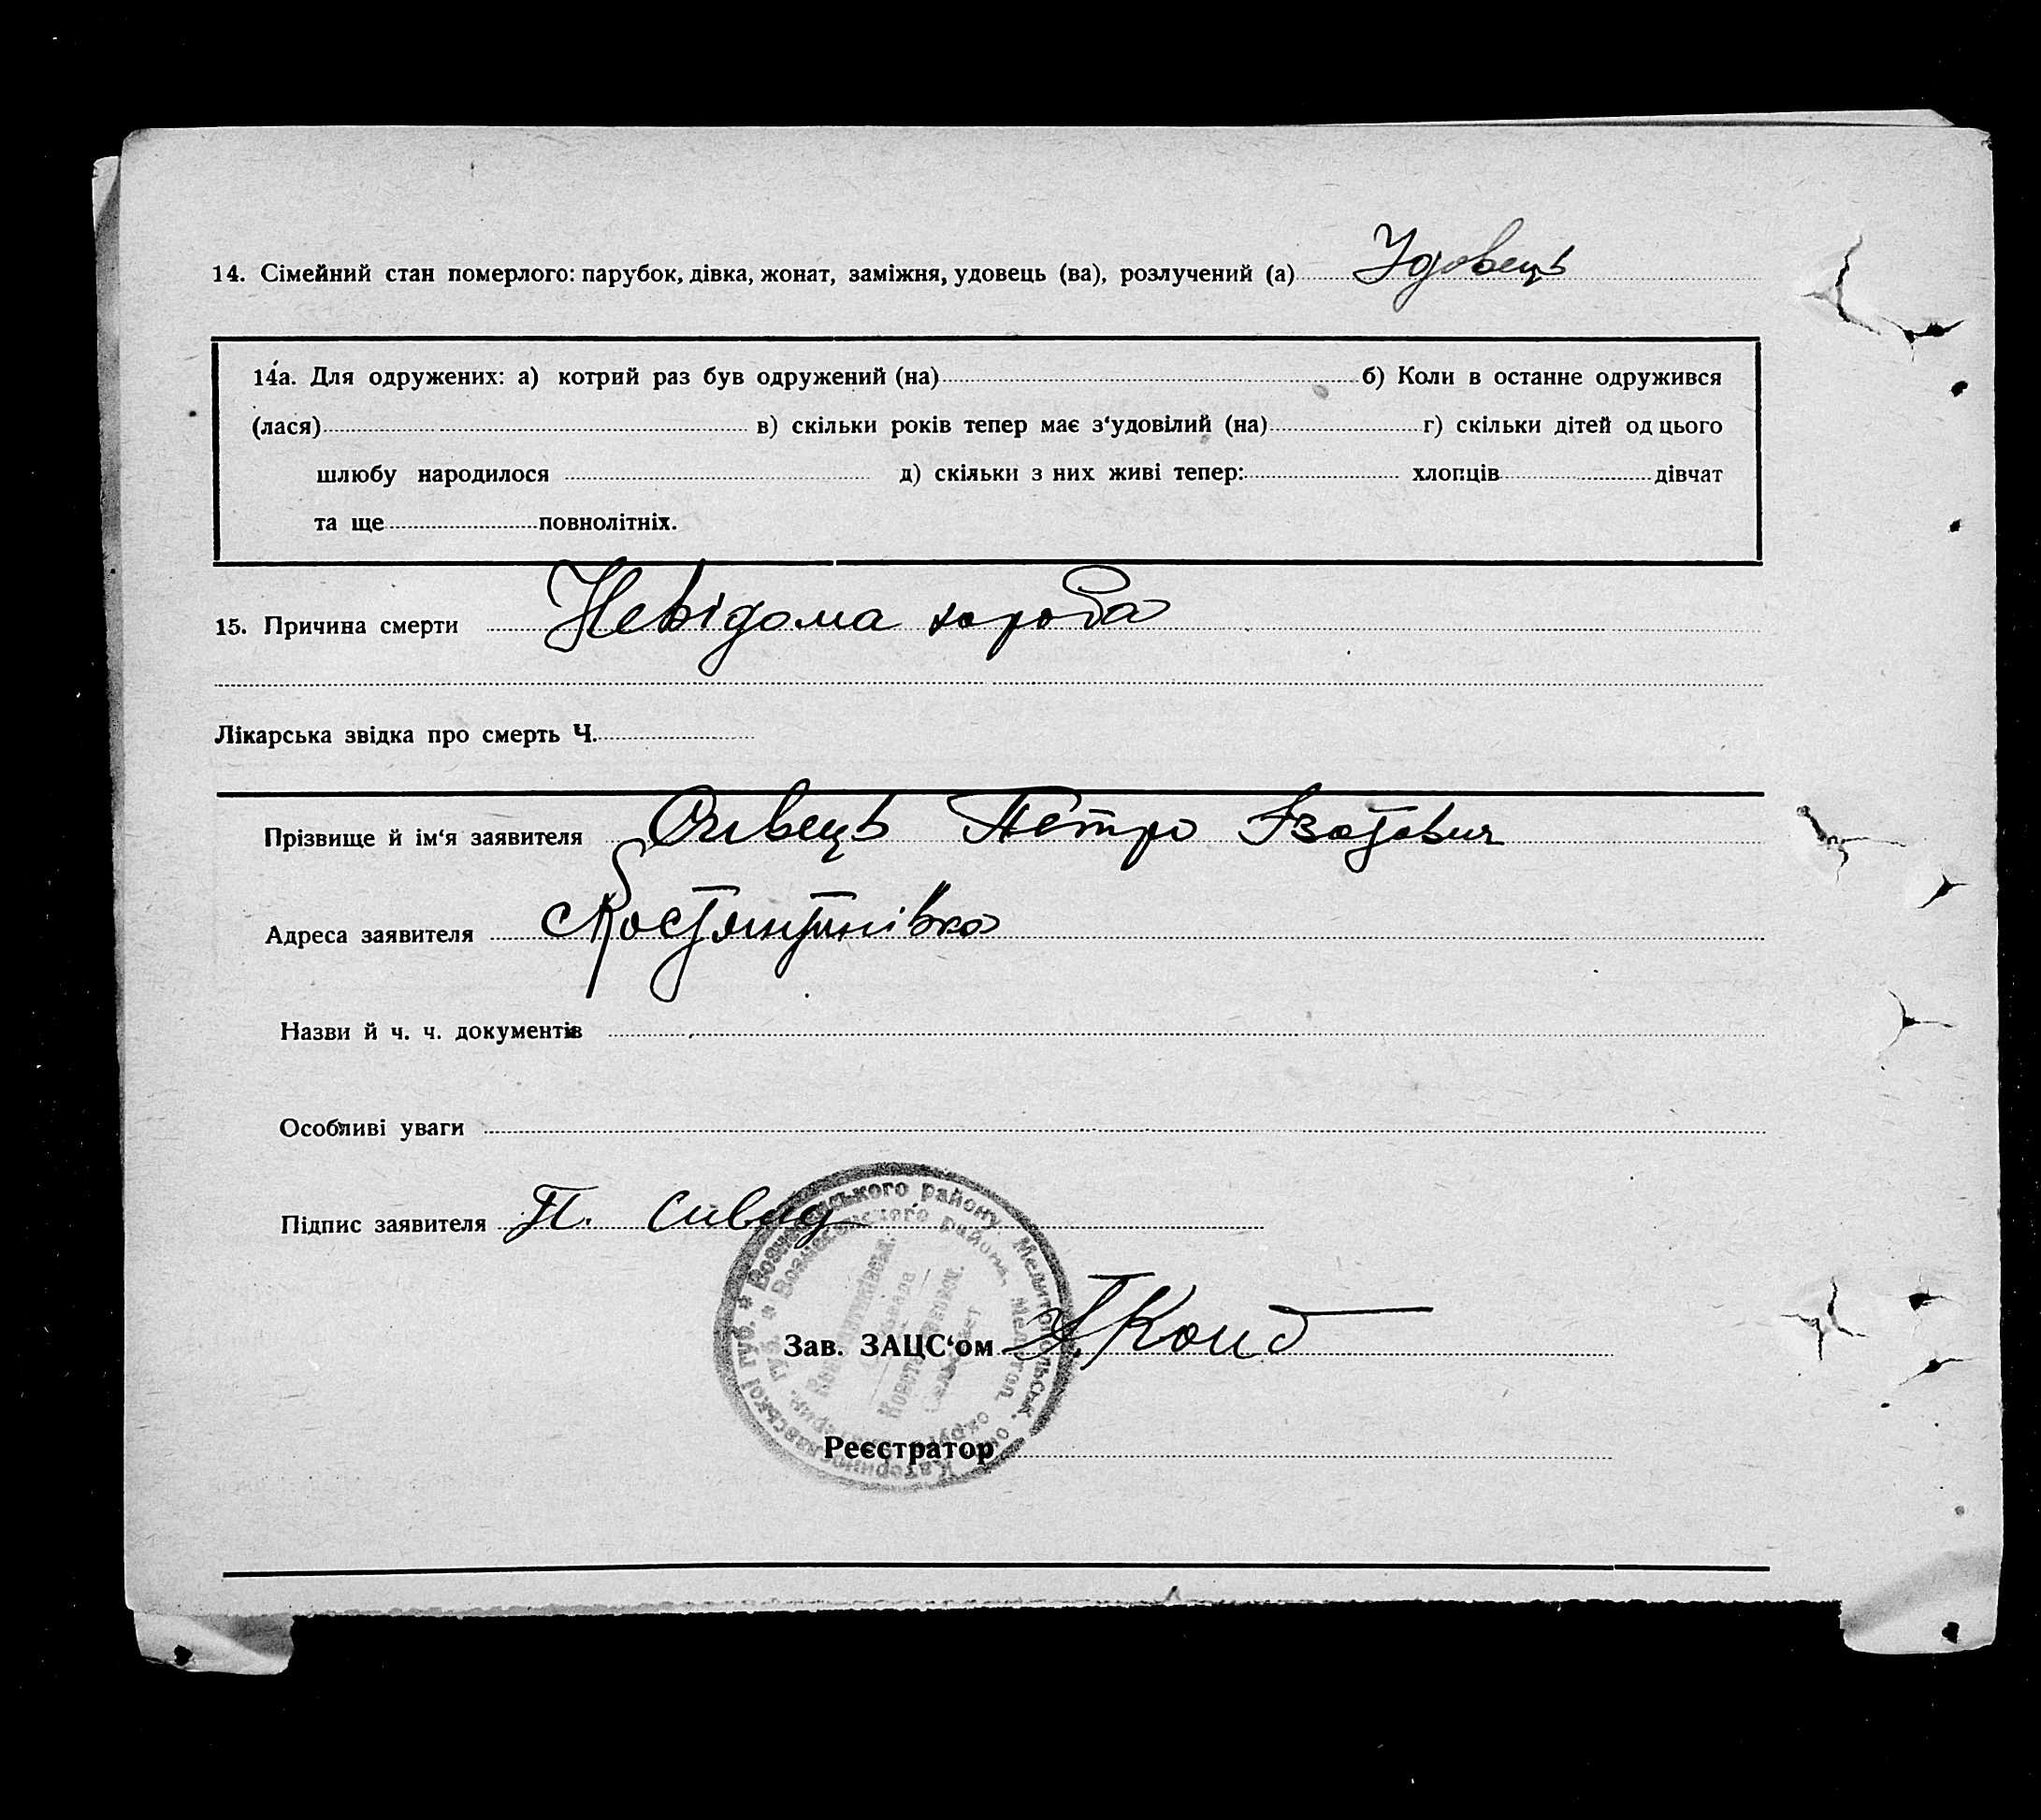 14. Сімейний стан померлого: парубок, дівка, жонат, заміжня, удовець (ва), розлучений (а) Удовець
14а. Для одружених: а) котрий раз був одружений (на) б) Коли в останне одружився
(лася) в) скільки років тепер має з‘удовілий (на) г) скільки дітей од цього
шлюбу народилося д) скільки з них живі тепер: хлопців дівчат
та ще повнолітніх.
15. Причина смерти Невідома хороба
Лікарська звідка про смерть Ч.
Прізвище й ім‘я заявителя Петро Ізотович
Адреса заявителя с Костянтинівка
Назви й ч. ч. документів
Особливі уваги
Підпис заявителя П.
Вознесенського району, Мелитопольськ. ок. Катеринославської губ.
Вознесенского района, Мелитоп. округа Катерин. губ.
Зав. ЗАЦС‘ом
Реєстратор